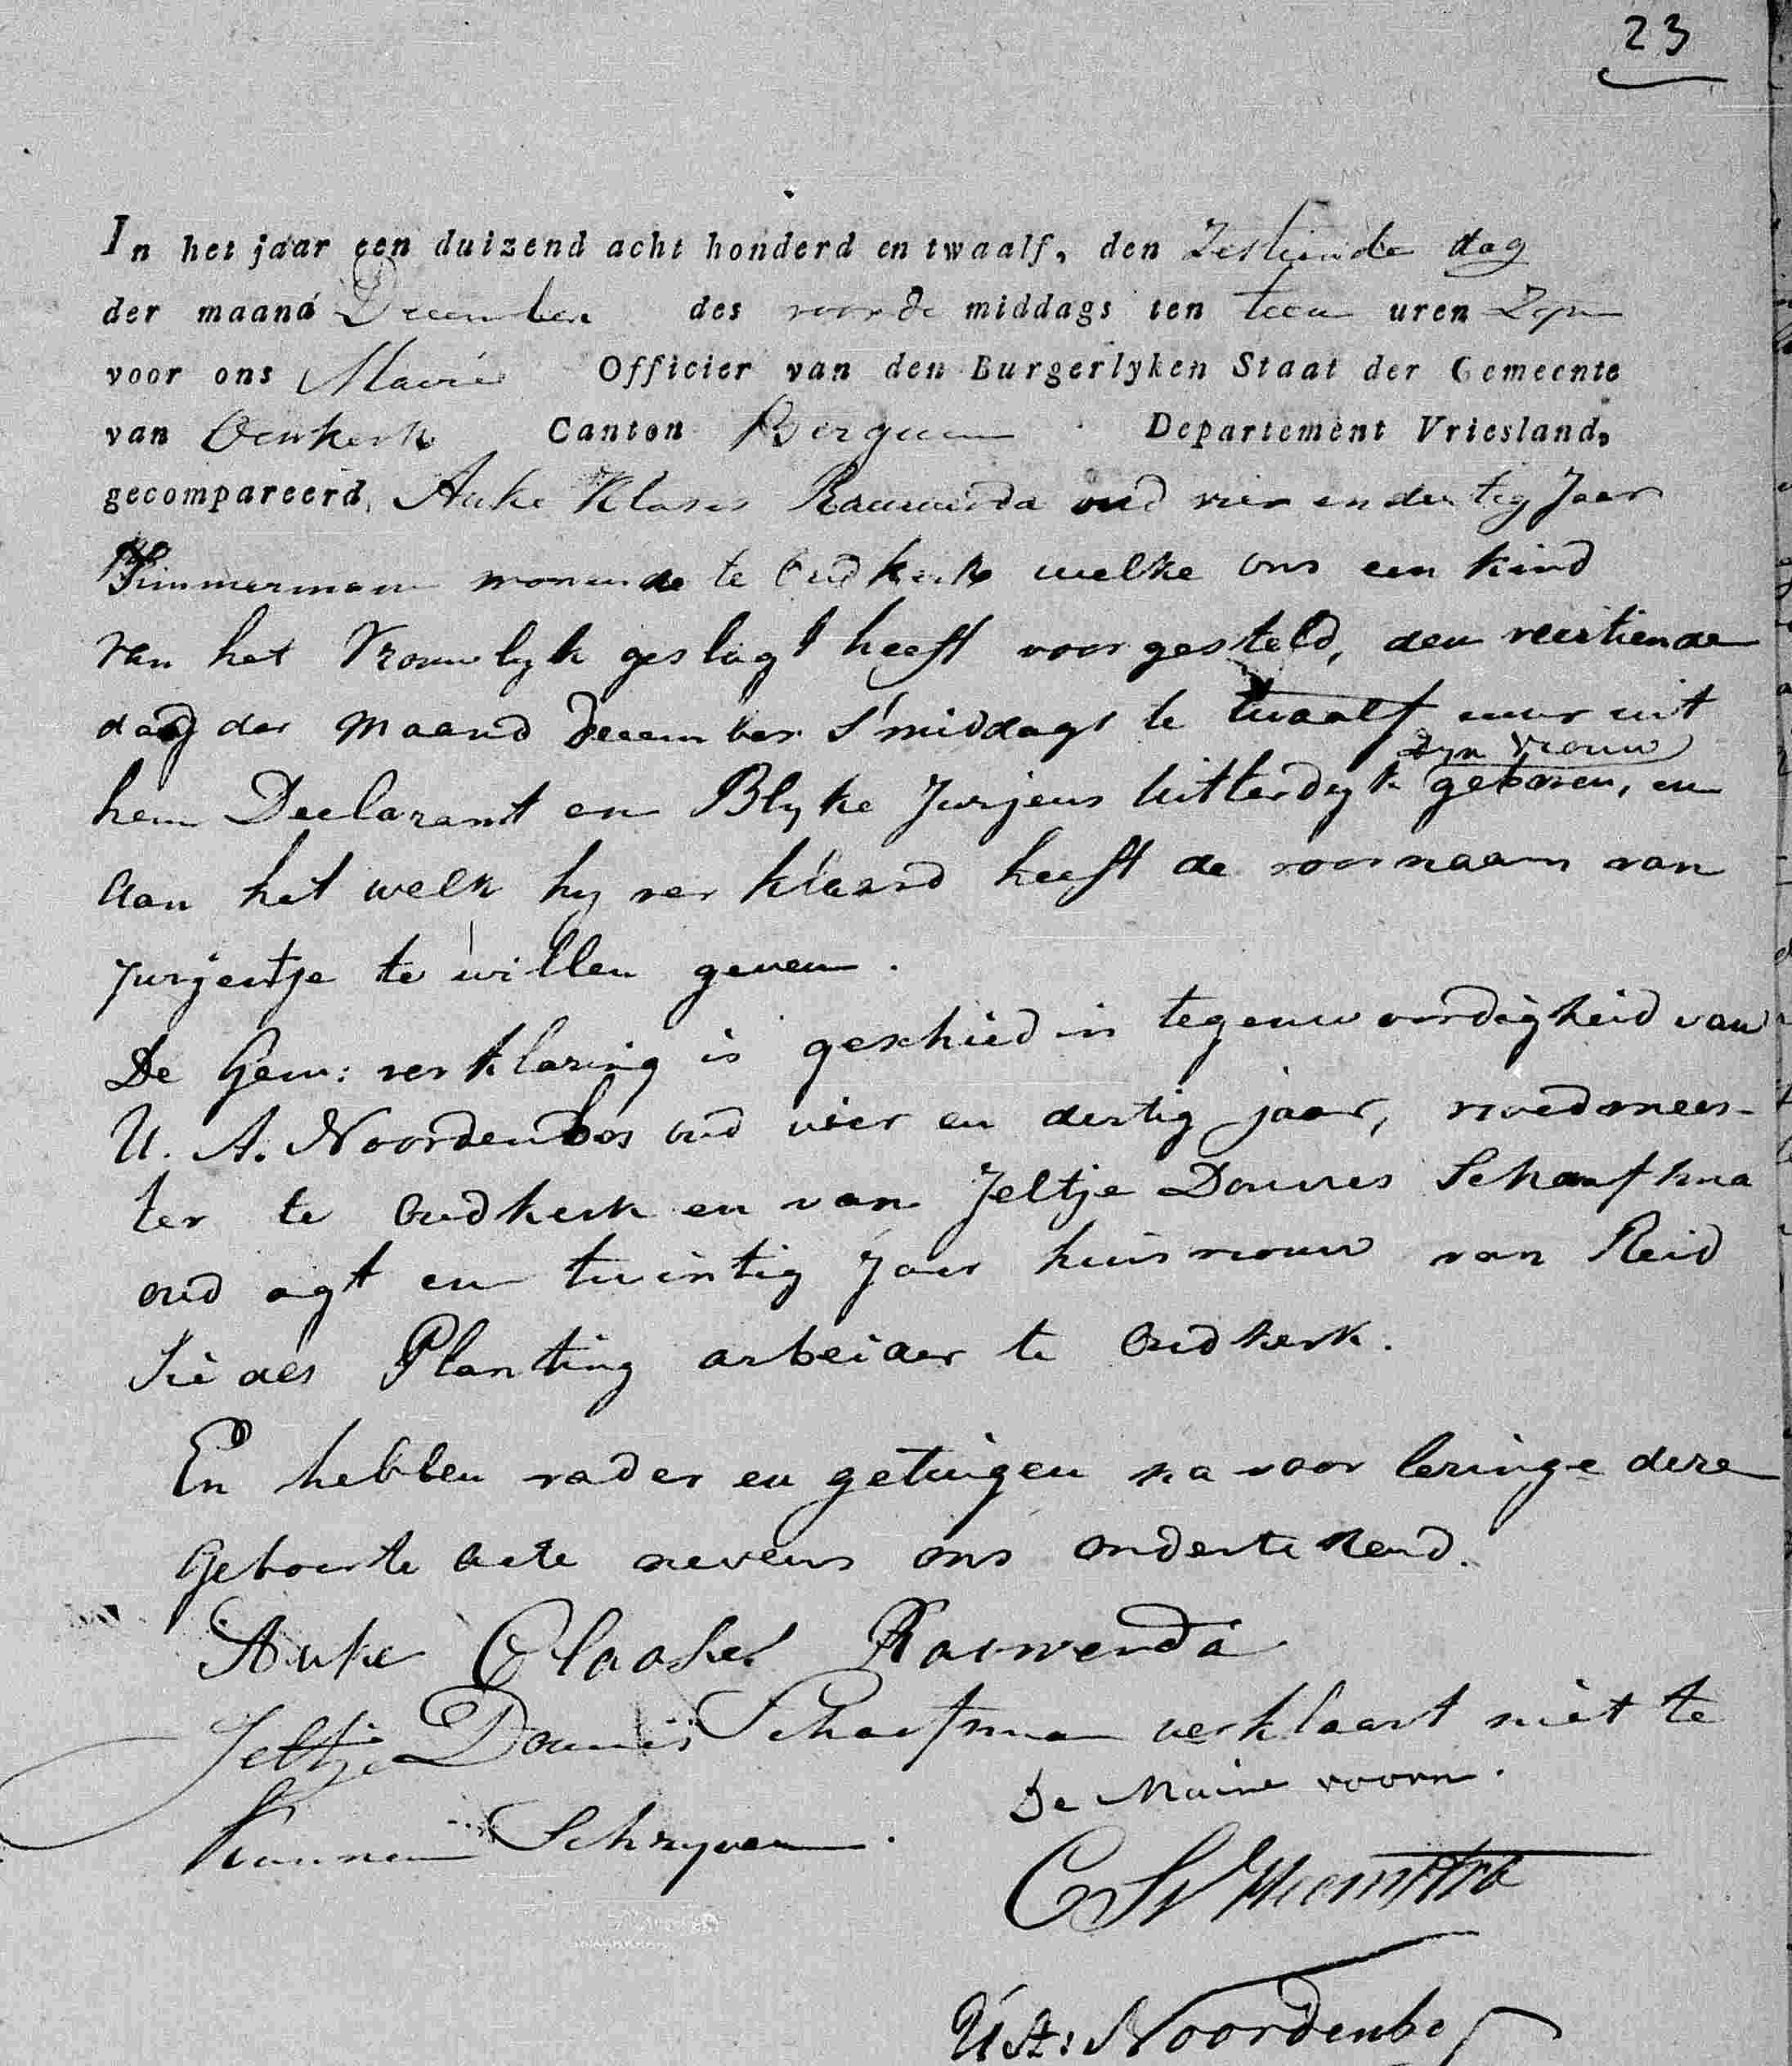 23
In het jaar een duizend acht honderd en twaalf, den Zestiende dag
der maand December des voorde middags ten tien uren Zyn
voor ons Maire Officier van den Burgerlyken Staat der Gemeente
van Oenkerk Canton Bergum Departement Vriesland,
gecompareerd, Auke Klases Rauwerda oud vier en dertig Jaar
Timmerman wonende te Oudkerk welke ons een kind
van het Vrouwlyk geslagt heeft voorgesteld, den veertiende
dag der Maand December S'middags te twaalf uur uit
zyn vrouw
hem Declarant en Blyke Jurjens Uitterdyk geboren, en
aan het welk hy verklaard heeft de voornaam van
Jurjentje te willen geven.
De Gem: verklaring is geschied in tegenwoordigheid van
U. A. Noordenbos oud vier en dertig jaar, vroedmees-
ter te Oudkerk en van Jeltje Douwes Schaafsma
oud agt en twintig Jaar huisvrouw van Reid
Planting arbeider te Oudkerk.
En hebben vader en getuigen na voorleringe deze
Geboorte acte nevens ons ondertekend.
Auke Claases Rauwerda
Jeltje Douwes Schaafsma verklaart niet te
De Maire voorn.
kunnen Schryven.
Heemstra
U A: Noordenbos